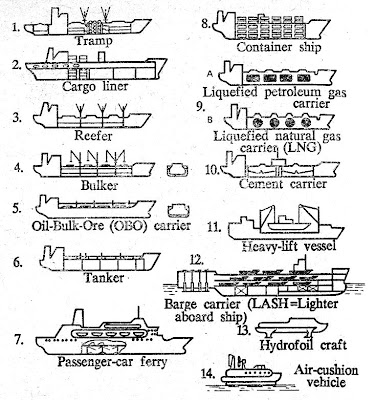 1.
Tramp
2.
Cargo liner
3.
Reefer
4.
Bulker
5.
Oil-Bulk-Ore (OBO) carrier
6.
Tanker
7.
Passenger-car ferry
8.
Container ship
9.
A
Liquefied petroleum gas
carrier
B
Liquefied natural gas
carrier (LNG)
10.
Cement carrier
11.
Heavy-lift vessel
12.
Barge carrier (LASH=Lighter
aboard ship)
13.
Hydrofoil craft
14.
Air-cushion
vehicle